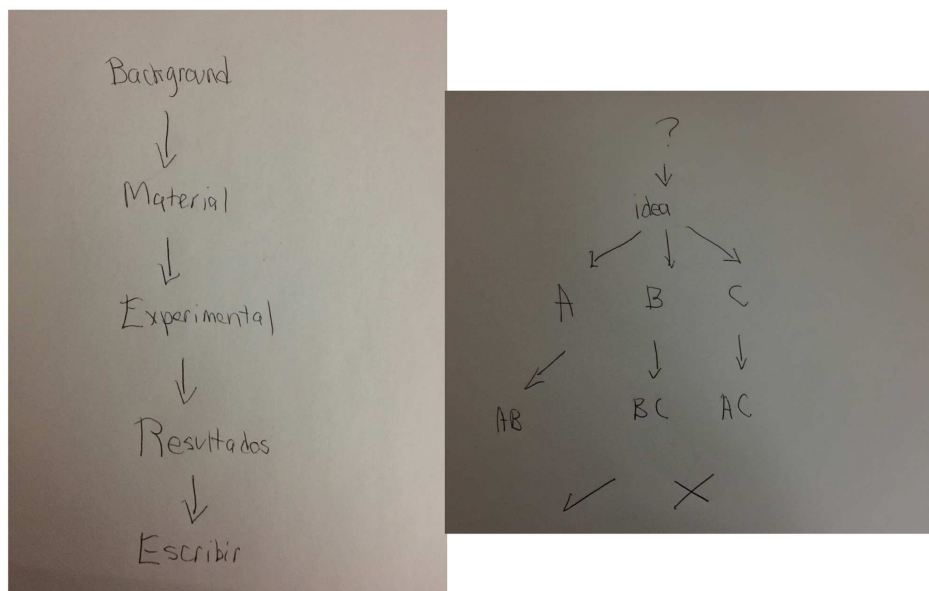 Background
Material
Experimental
Resultados
Escribir
?
idea
A B C
AB BC AC